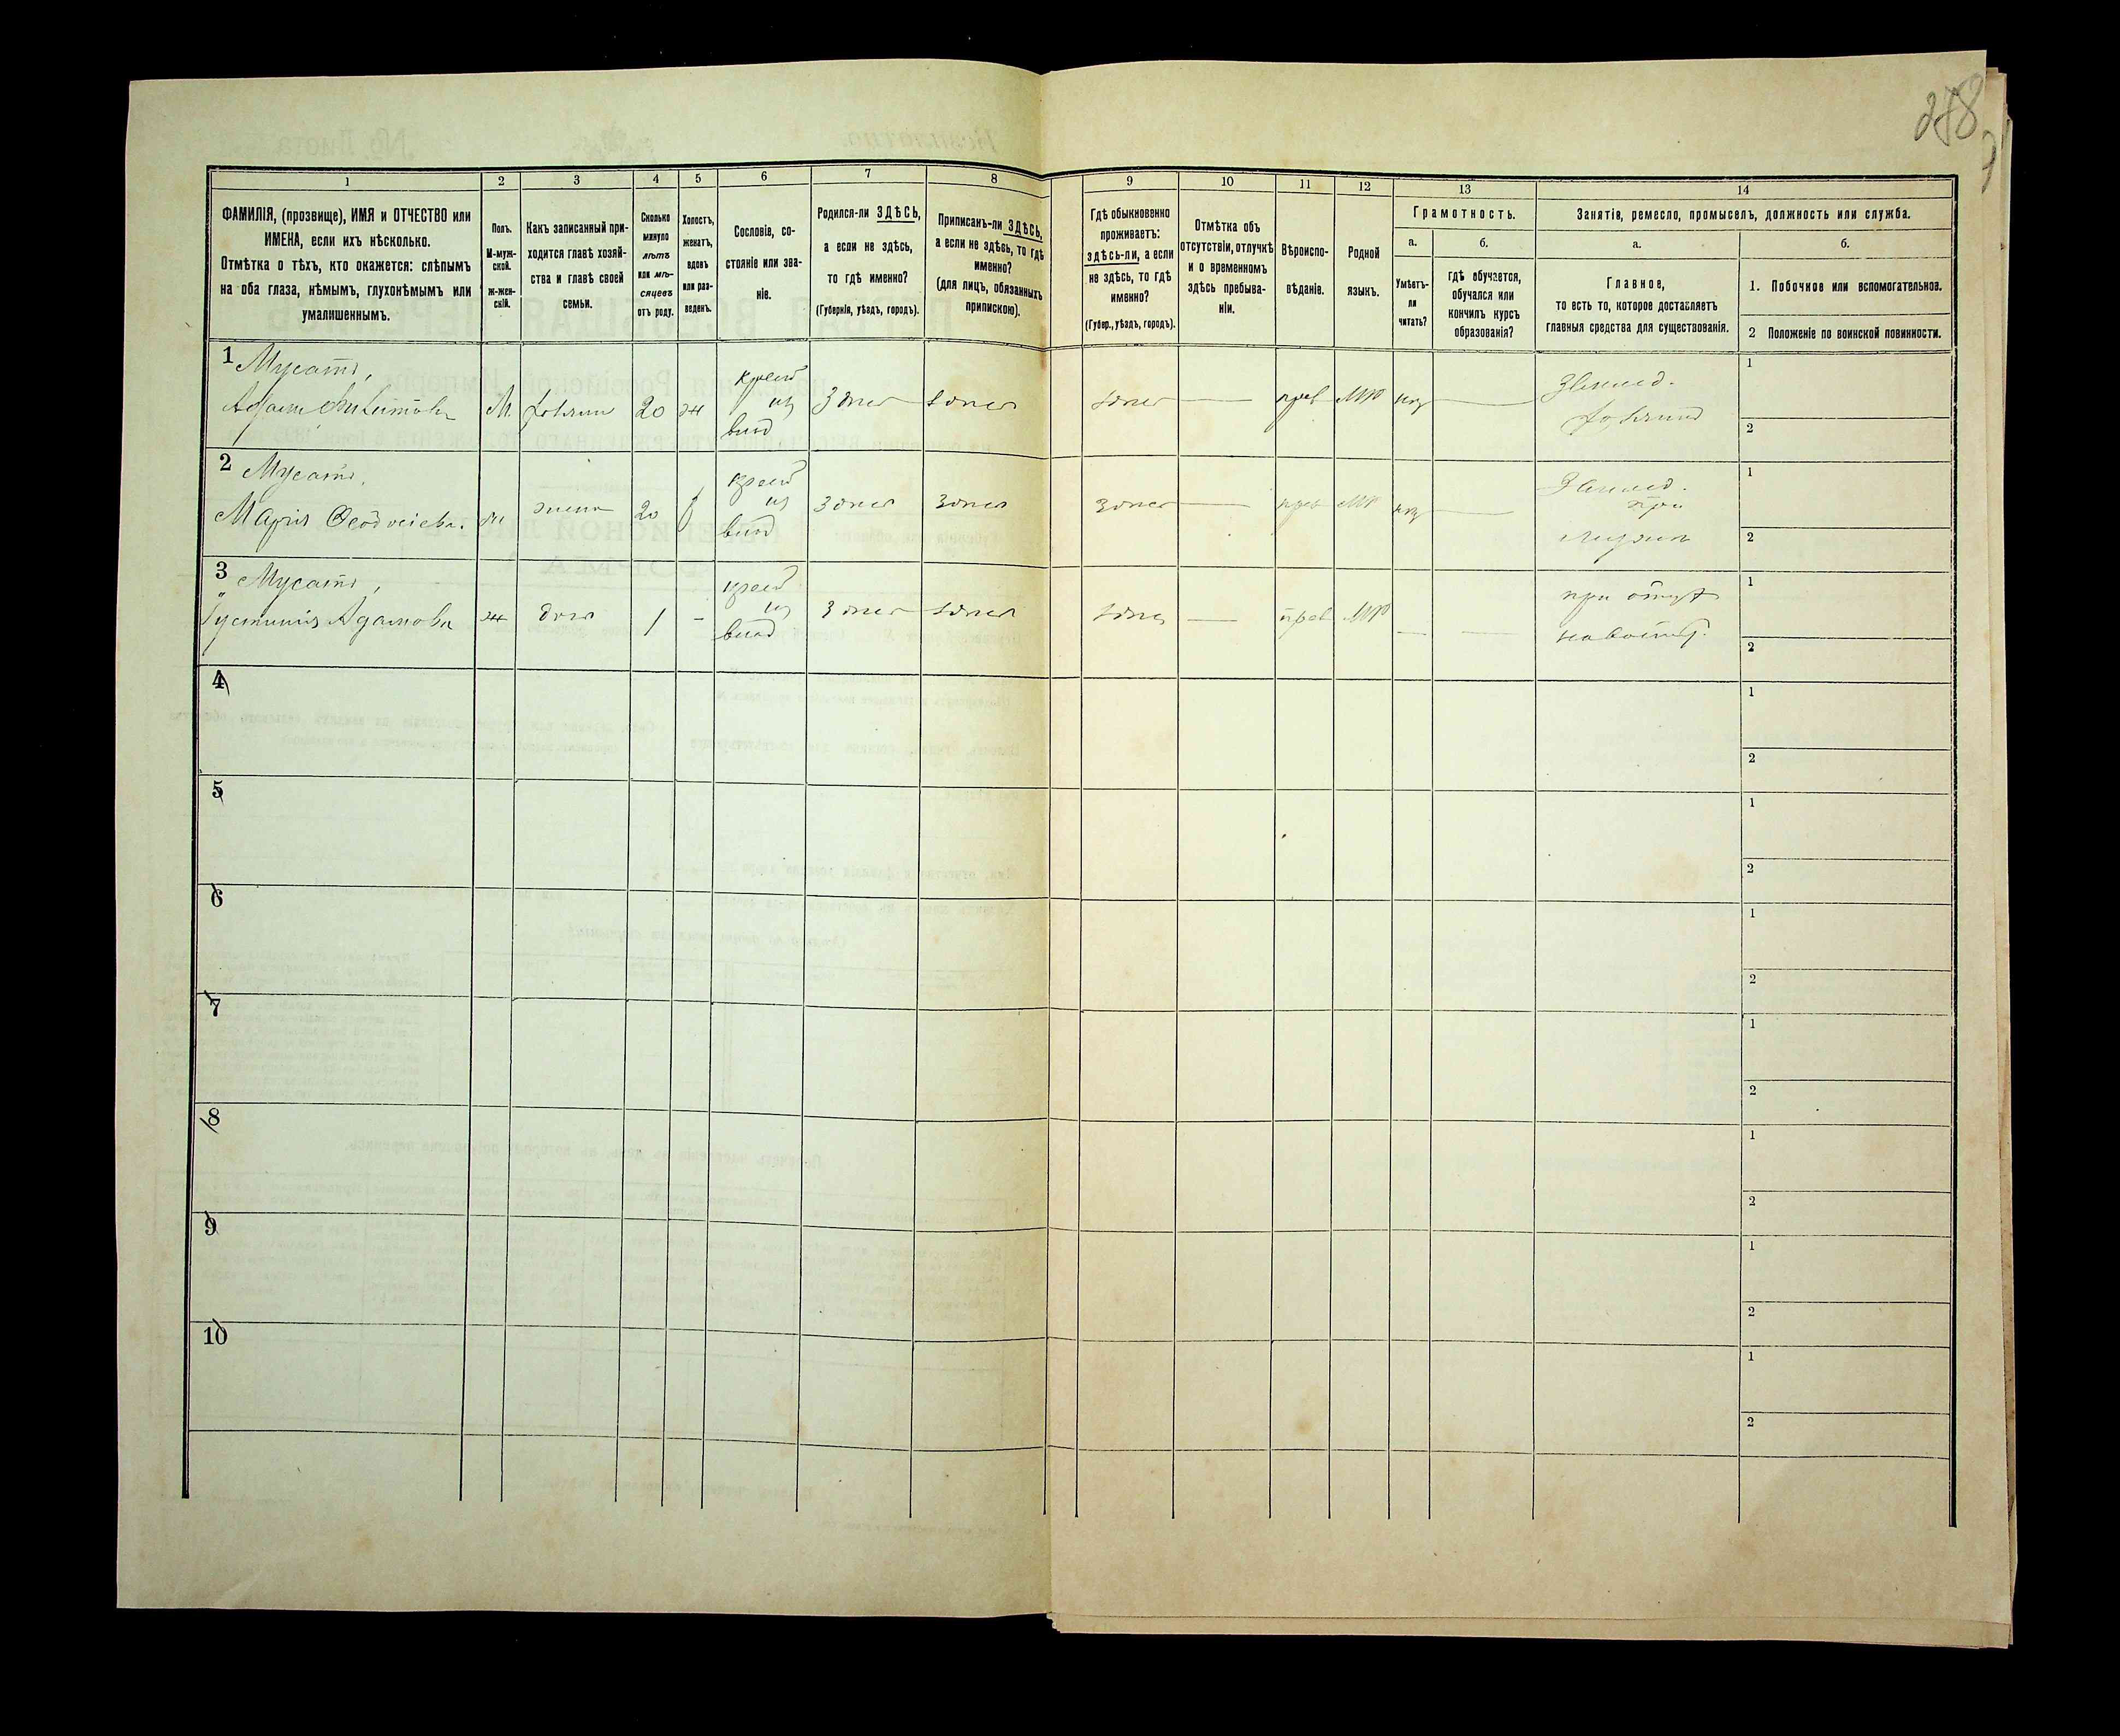 278
1 2 3 4 5 6 7 8 9 10 11 12 13 14
ФАМИЛІЯ, (прозвище), ИМЯ и ОТЧЕСТВО или
ИМЕНА, если ихъ нѣсколько.
Отмѣтка о тѣхъ, кто окажется: слѣпымъ
на оба глаза, нѣмымъ, глухонѣмымъ или
умалишеннымъ.
Полъ.
М-муж-
ской.
ж-жен-
скій.
Какъ записанный при-
ходится главѣ хозяй-
ства и главѣ своей
семьи.
Сколько
минуло
лѣтъ
или мѣ-
сяцевъ
отъ роду.
Холостъ,
женатъ,
вдовъ
или раз-
веденъ.
Сословіе, со-
стояніе или зва-
ніе.
Родился-ли ЗДѢСЬ,
а если не здѣсь,
то гдѣ именно?
(Губернія, уѣздъ, городъ).
Приписанъ-ли ЗДѢСЬ,
а если не здѣсь, то гдѣ
именно?
(для лицъ, обязанныхъ
припискою).
Гдѣ обыкновенно
проживаетъ:
здѣсь-ли, а если
не здѣсь, то гдѣ
именно?
(Губер., уѣздъ, городъ).
Отмѣтка объ
отсутствіи, отлучкѣ
и о временномъ
здѣсь пребыва-
ніи.
Вѣроиспо-
вѣданіе.
Родной
языкъ.
Грамотность.
а.
Умѣетъ-
ли
читать?
б.
гдѣ обучается,
обучался или
кончилъ курсъ
образованія?
Занятіе, ремесло, промыселъ, должность или служба.
а.
Главное,
то есть то, которое доставляетъ
главныя средства для существованія.
б.
1. Побочное или вспомогательное.
2 Положеніе по воинской повинности.
1 Мусатъ,
Адам
М. 20 ж
крест
из
влад
Здесь здесь здесь — прав мол —
Землед.
1
2
2 Мусатъ,
Марія
ж жена 20
крест
из
влад
Здесь Здесь Здесь — прав мол —
Землед.
при
1
2
3 Мусатъ,
Іустинія Адамова
ж дочь 1 -
крест
из
влад
Здесь здесь здесь — прав мол — —
при отце
1
2
4 1
2
5 1
2
6 1
2
7 1
2
8 1
2
9 1
2
10 1
2